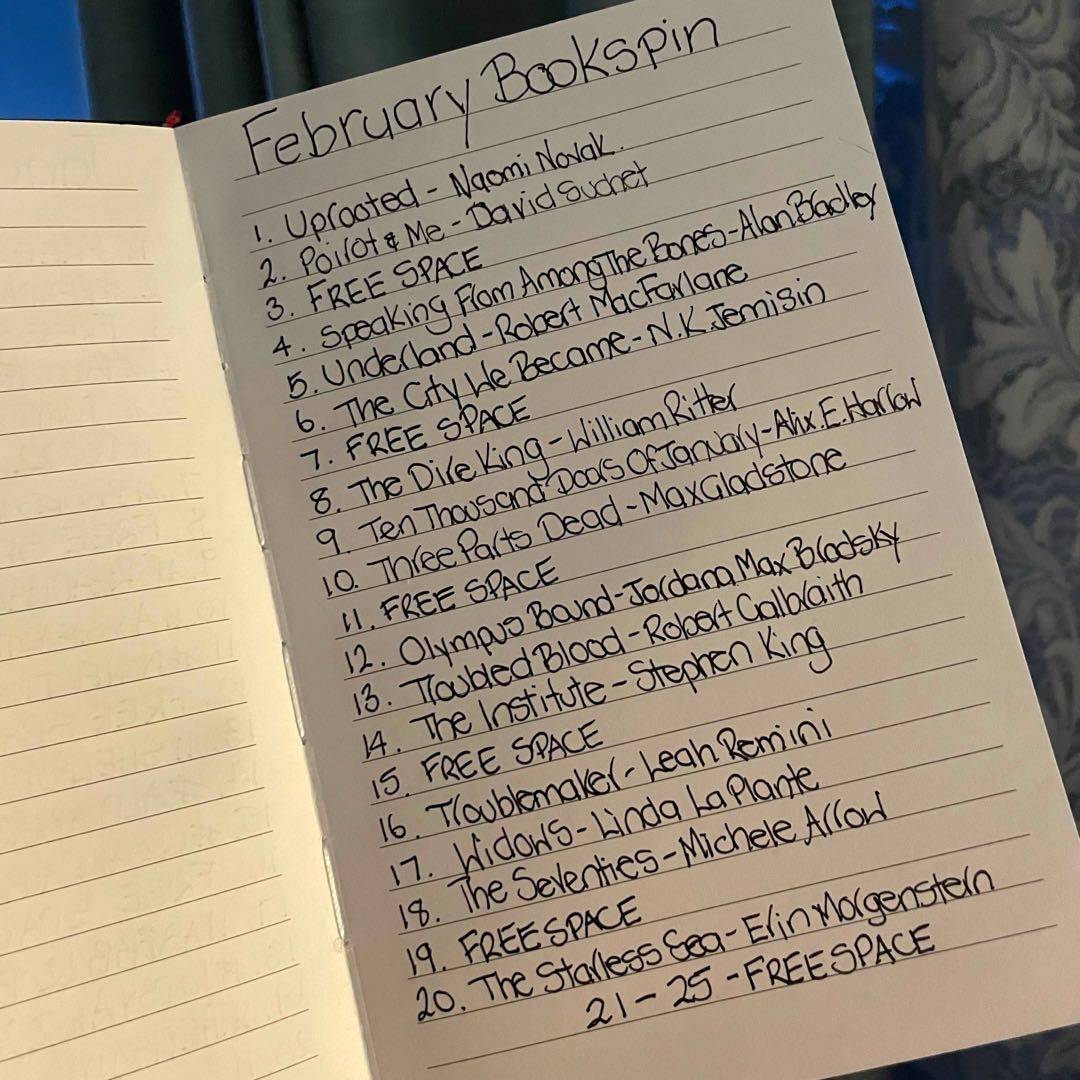 February Bookspin
1. Uprooted - Naomi Novak.
2. Poirot & Me - David Suchet
3. FREE SPACE
4. Speaking From Among The Bones - Alan Bradley
5. Underland - Robert MacFarlane
6. The City We Became - N.K. Jemisin
7. FREE SPACE
8. The Dire King - William Ritter
9. Ten Thousand Doors Of January - Alix.E.Harrow
10. Three Parts Dead - Max Gladstone
11. FREE SPACE
12. Olympus Bound - Jordana Max Brodsky
13. Troubled Blood - Robert Galbraith
14. The Institute - Stephen King
15. FREE SPACE
16. Troublemaker - Leah Remini
17. Widows - Linda La Plante
18. The Seventies - Michele Arrow
19. FREE SPACE
20. The Starless Sea - Erin Morgenstern
21 - 25 - FREE SPACE